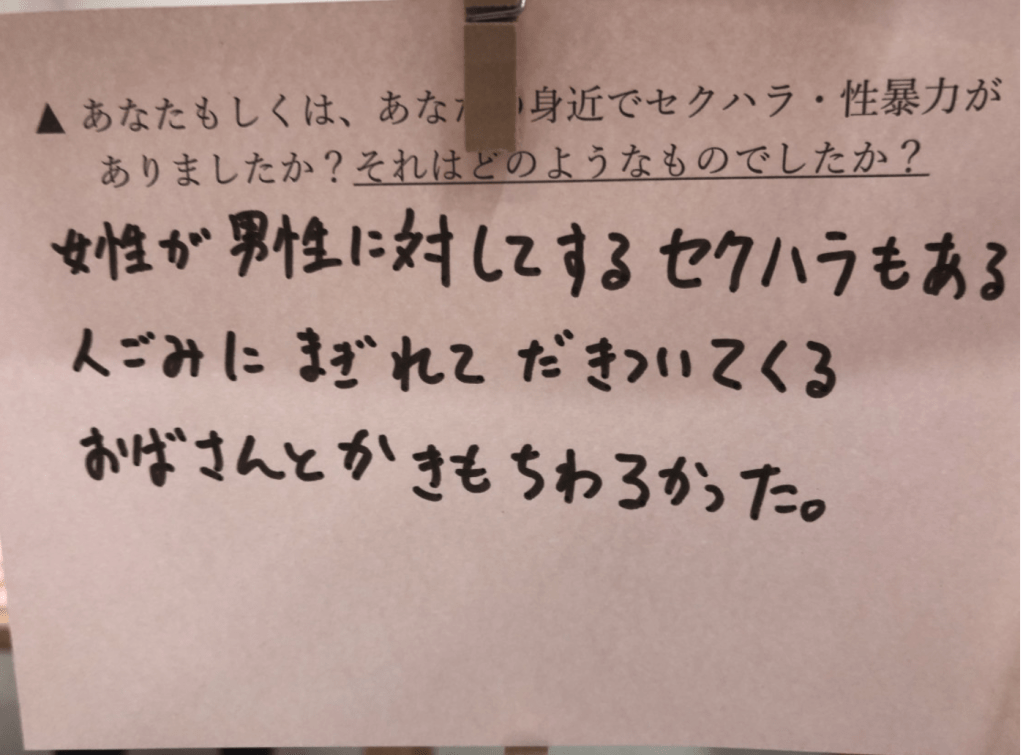 ▲ あなたもしくは、あなたの身近でセクハラ・性暴力が
ありましたか？それはどのようなものでしたか？
女性が男性に対してする セクハラもある
人ごみに まぎれて だきついてくる
おばさんとか きもちわろかった。